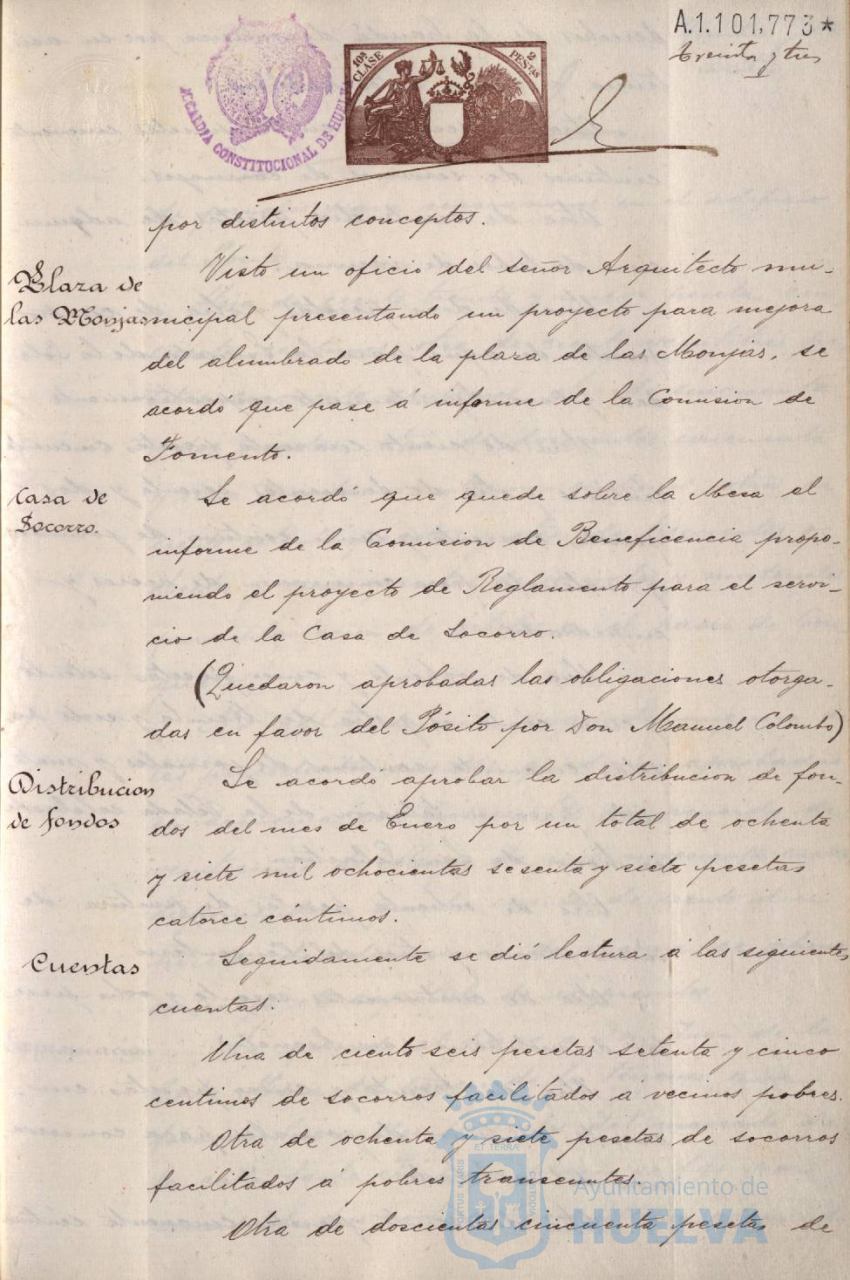 A.1.101,773*
treinta y tres
10ª CLASE
2 PESTAS
ALCALDIA CONSTITUCIONAL DE HUELVA
por distintos conceptos.
Plaza de
las Monjas
Visto un oficio del señor Arquitecto mu-
nicipal presentando un proyecto para mejora
del alumbrado de la plaza de las Monjas, se
acordó que pase á informe de la Comision de
Fomento.
Casa de
Socorro.
Se acordó que quede sobre la Mesa el
informe de la Comision de Beneficencia propo-
niendo el proyecto de Reglamento para el servi-
cio de la Casa de Socorro.
(Quedaron aprobadas las obligaciones otorga-
das en favor del Pósito por Don Manuel Colombo)
Distribucion
de fondos
Se acordó aprobar la distribucion de fon-
dos del mes de Enero por un total de ochenta
y siete mil ochocientas sesenta y siete pesetas
catorce céntimos.
Cuentas
Seguidamente se dió lectura á las siguientes
cuentas:
Una de ciento seis pesetas setenta y cinco
centimos de socorros facilitados á vecinos pobres.
Otra de ochenta y siete pesetas de socorros
facilitados á pobres transeuntes.
Otra de doscientas cincuenta pesetas de
Ayuntamiento de
HUELVA